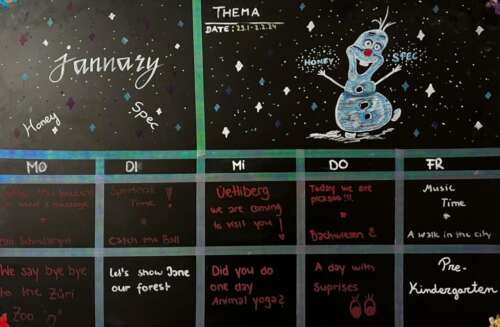 January
Honey
Spec
THEMA
DATE: 29.1-2.2.24
HONEY
SPEC
MO
DI
Mi
DO
FR
a massage
Time !
Catch the Ball
Uetliberg
we are coming
to visit you !
Today we are
picasso !!!
Bachwiesen 2
Music
Time
A walk in the city
We say bye bye
to the Züri
Zoo
Let's show Jane
our forest
Did you do
one day
Animal yoga?
A day with
Suprises
Pre-
Kindergarten